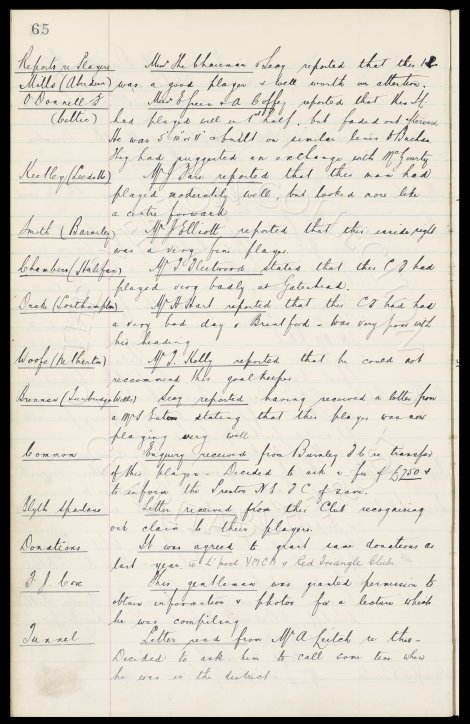 65
Reports re Players Messrs The Chairman & Secy reported that this IR
Mills (Aberdeen) was a good player & well worth our attention.
O'Donnell F Messrs C Green & A Coffey reported that this I.L.
(Celtic) had played well in 1st half, but faded out afterwards
He was 5' 10" or 11" & built on similar lines to Buchan
They had suggested an exchange with McGourty
Keetley (Leeds U) Mr J Fare reported that this man had
played moderately well, but looked more like
a centre forward
Smith (Barnsley) Mr J Elliott reported that this inside right
was a very fine player.
Chambers (Halifax) Mr T Fleetwood stated that this C F had
played very badly at Gateshead.
Drake (Southampton) Mr A Hart reported that this C F had had
a very bad day v Brentford – was very poor with
his heading
Woofe (Netherton) Mr J. Kelly reported that he could not
recommend this goalkeeper
Brennan (Tunbridge Wells) Secy reported having received a letter from
a Mr S Eaton stating that this player was now
playing very well
Common Enquiry received from Burnley F C re transfer
of this player – Decided to ask a fee of £750 &
to inform the Preston N E F C of same.
Blyth Spartans Letter received from this Club recognising
our claim to their players.
Donations It was agreed to grant same donations as
last year to L'pool YMCA & Red Triangle Club.
F J Cox This gentleman was granted permission to
obtain information & photos for a lecture which
he was compiling
Tunnel Letter read from Mr A Leitch re this –
Decided to ask him to call some time when
he was in the district.